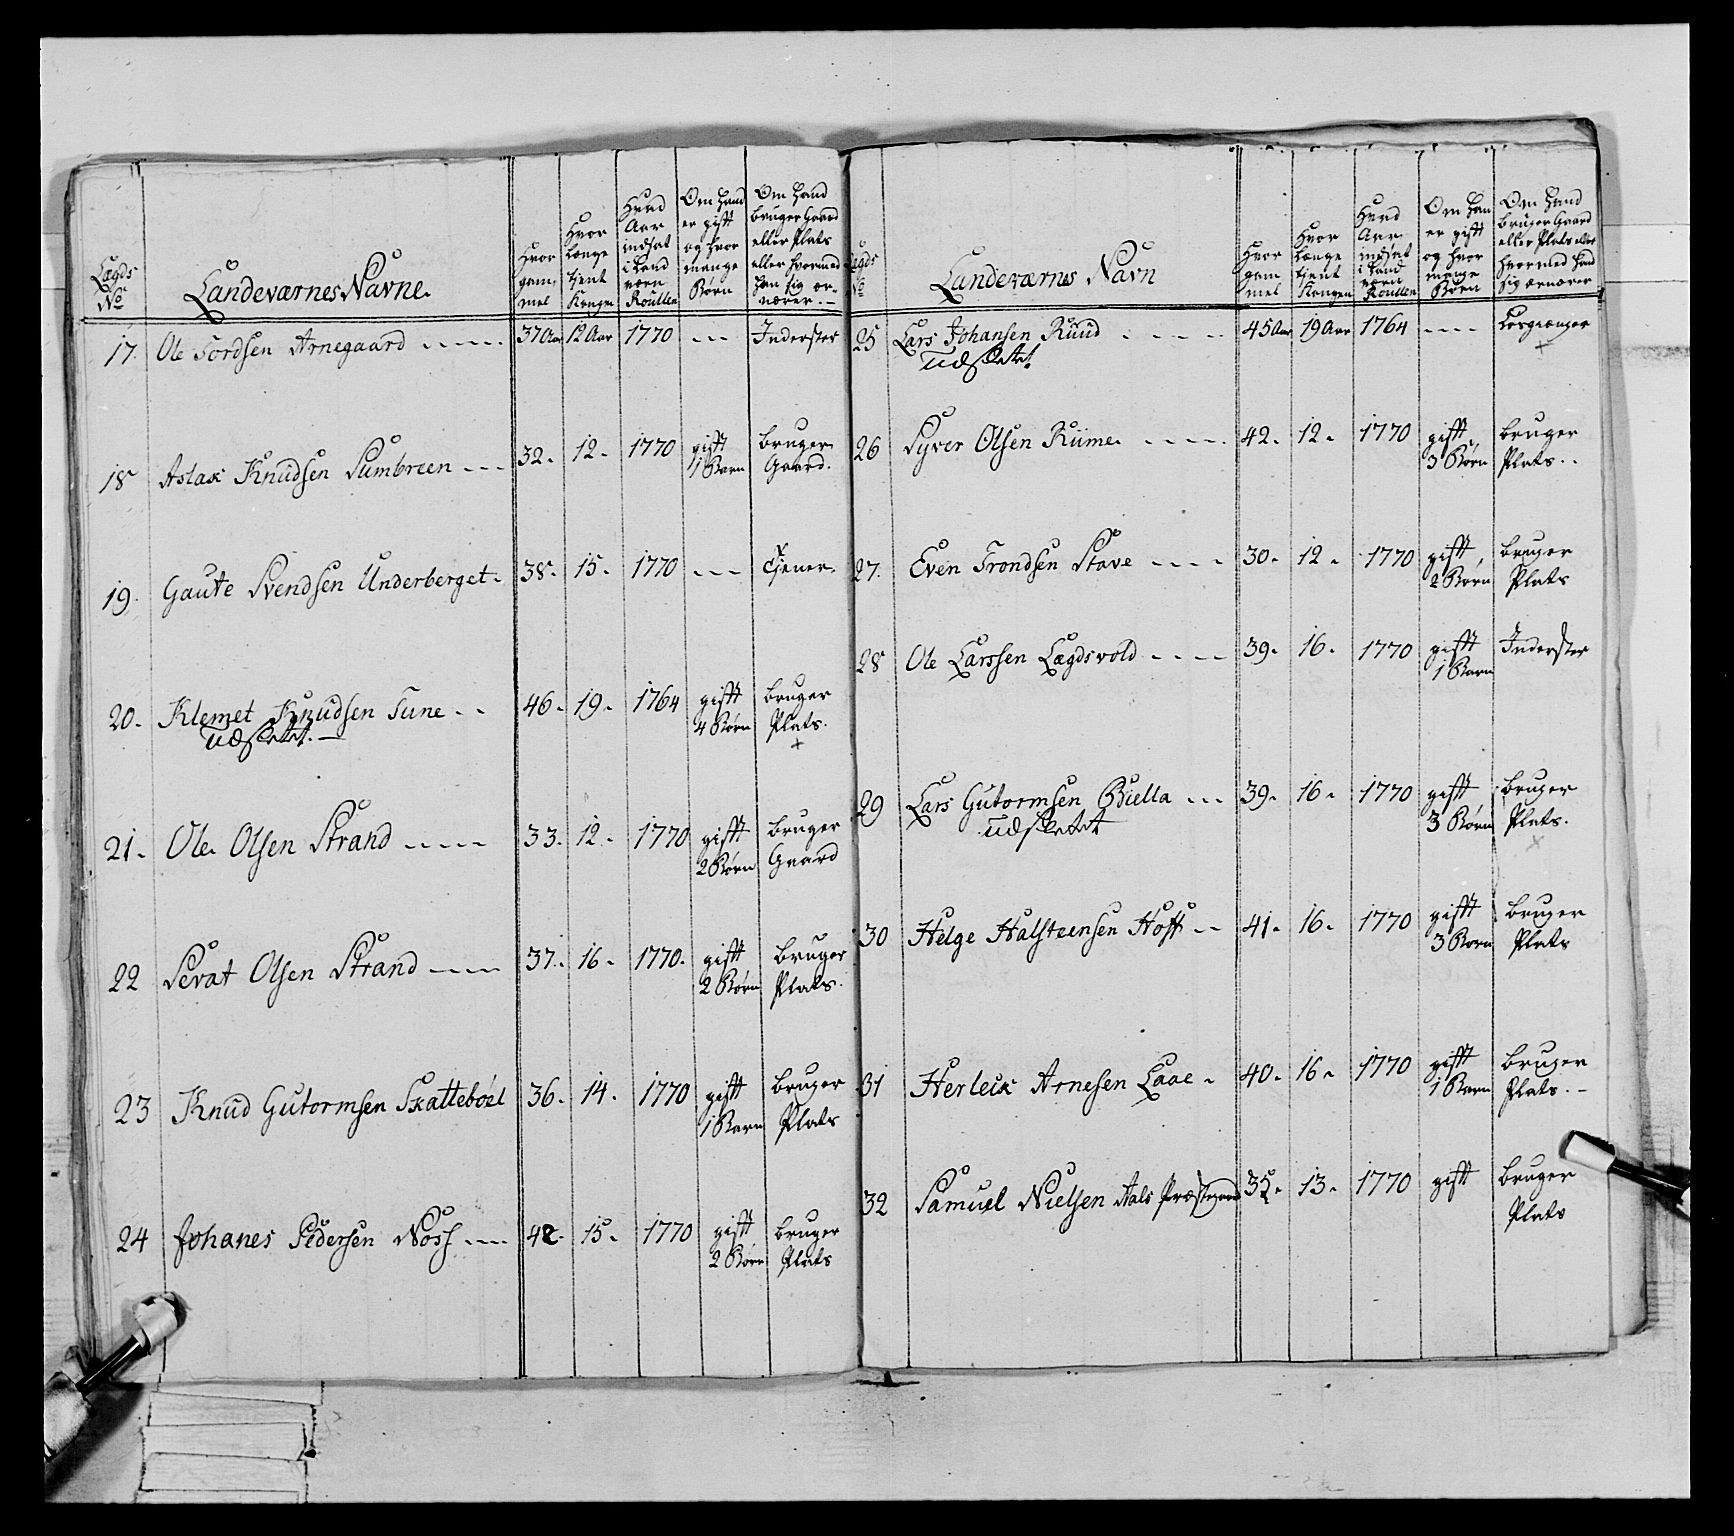 Lægds No
Landeværnes Navne.
Hvor gam¸ mel
Hvor længe tjent Kongen
Hvad Aar indsat i Land værn Roullen
Om hand er gift og hvor mange Børn
Om hand bruger Gaard eller Plats eller hvormed han sig er¸ nærer. -
17. Ole Tordsen Arnegaard - - - - - 37 Aar 12 Aar 1770 - - - Inderster
18 Aslak Knudsen Sumbreen - - - 32. 12. 1770 gift 1 Barn bruger Gaard.
19. Gaute Svendsen Underberget. 38. 15. 1770 - - - Tjener.
20. Klemet Knudsen Tune - - 46. 19. 1764 gift 4 Børn bruger Plats. +
udslettet. -
21. Ole Olsen Strand - - - - - 33. 12. 1770 gift 2 Børn bruger Gaard
22 Sevat Olsen Strand - - - - 37. 16. 1770. gift 2 Børn bruger Plats.
23 Knud Gutormsen Skatteböel 36. 14. 1770 gift 1 Barn bruger Plats
24 Johanes Pedersen Noss - - - 42. 15. 1770 gift 2 Børn bruger Plats
Lægds No
Landeværnes Navn
Hvor gam mel
Hvor længe tjent Kongen
Hvad Aar indsat i Land værn Roullen
Om han er gift og hvor mange Børn
Om hand bruger Gaard eller Plats eller hvormed hand sig ernærer
25 Lars Johansen Ruud - - - - 45 Aar 19 Aar 1764 - - - - Losgiænger +
udslettet.
26 Syver Olsen Riime. - - - - - 42. 12. 1770 gift 3 Børn bruger Plats. .
27. Even Trondsen Stave - - - - 30. 12. 1770 gift 2 Børn bruger Plats
28 Ole Larssen Lægdsvold - - - - 39. 16. 1770 gift 1 Barn Inderster
29 Lars Gutormsen Biella - - - 39. 16. 1770 gift 3 Børn bruger Plats. +
udslettet
30 Helge Halsteensen Hoff - - 41. 16. 1770 gift 3 Børn bruger Plats
31 Herleik Arnesen Laae - 40. 16. 1770 gift 1 Barn bruger Plats. -
32 Samuel Nielsen Aals Præstegaard 35. 13. 1770 gift bruger Plats